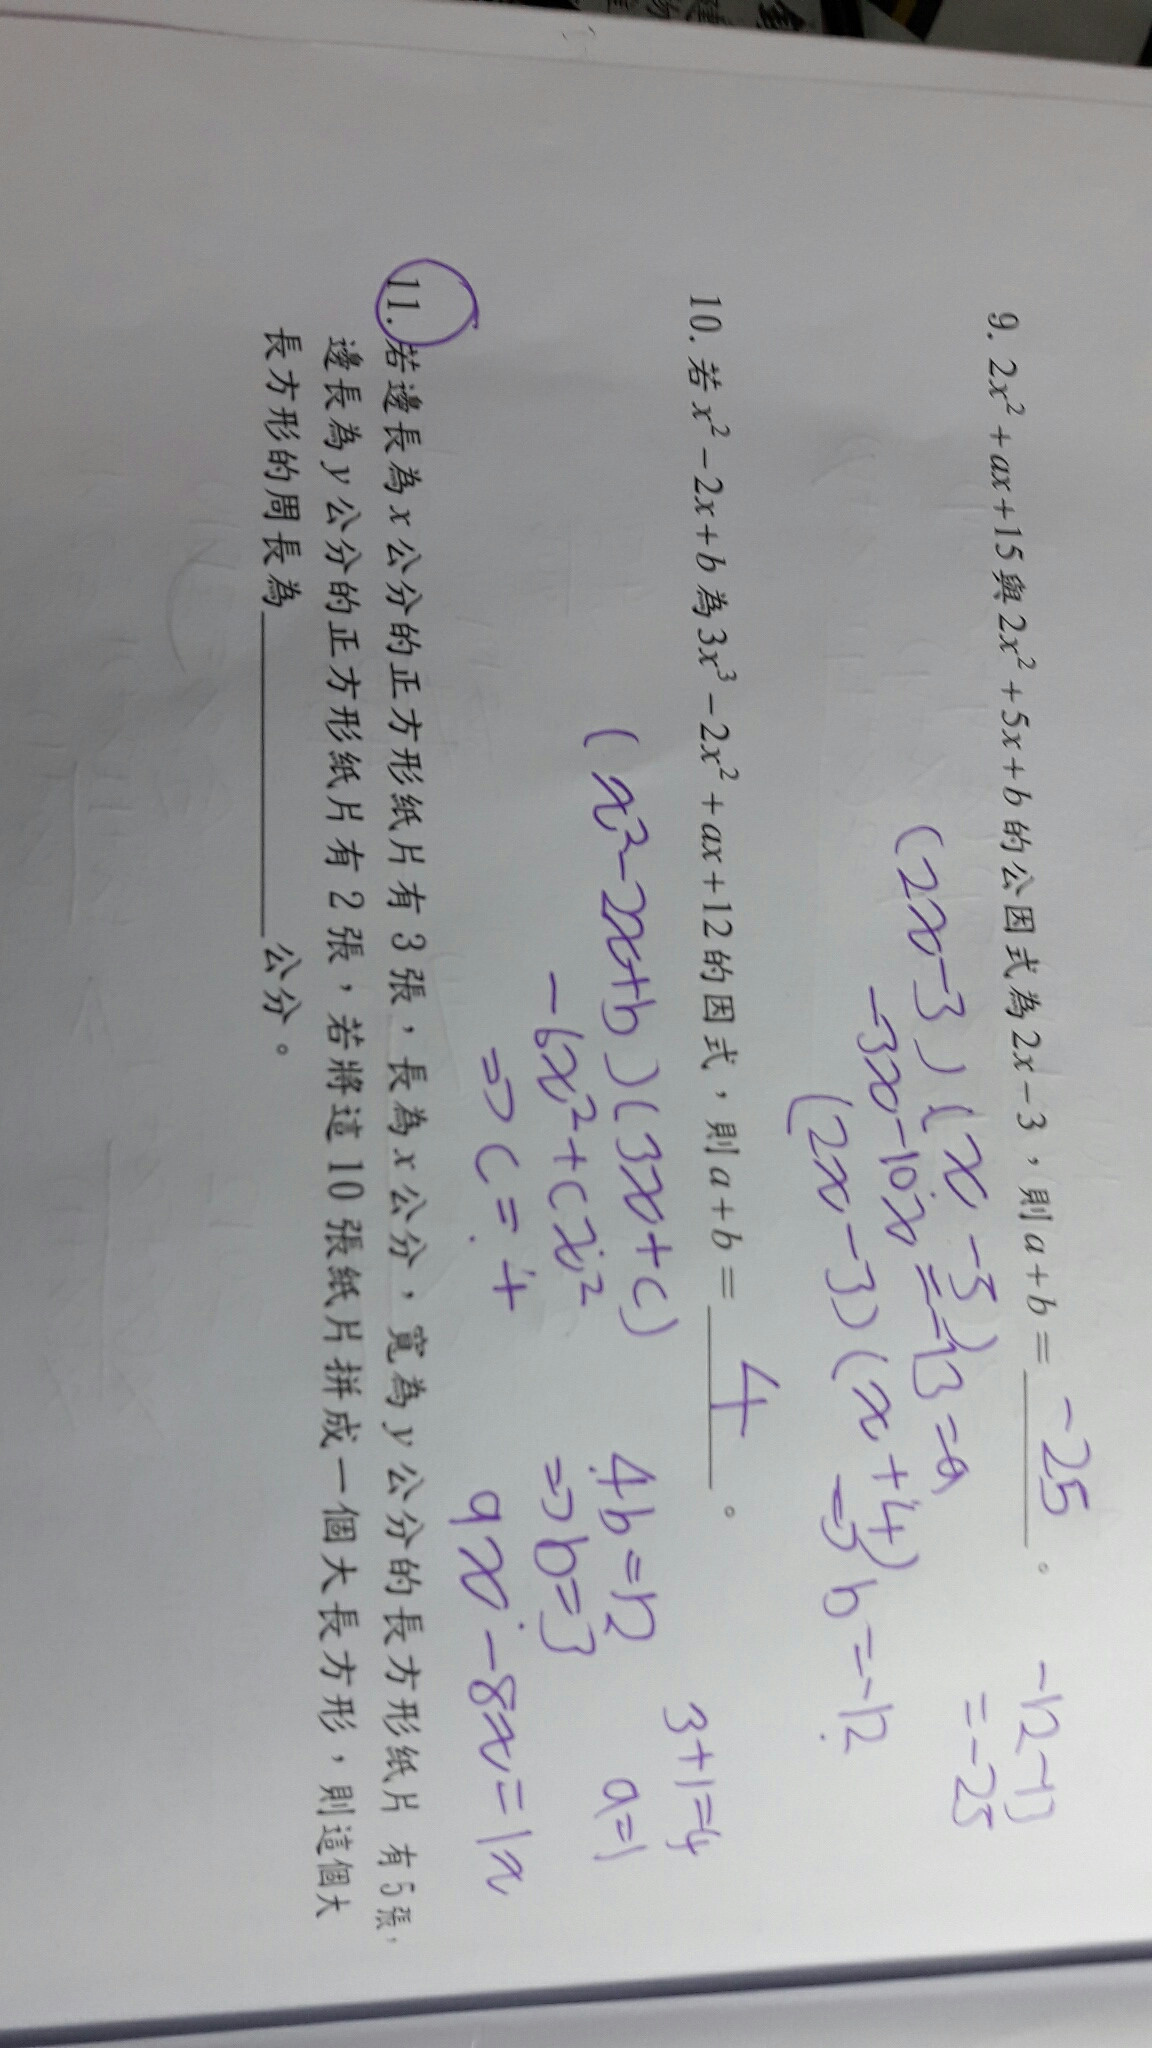 9. 2x²+ax+15與2x²+5x+b的公因式為2x-3,則a+b=-25。
-12-13
=-25
(2x-3)(x-5)
-3x-10x=-13=a
(2x-3)(x+4)
⇒b=-12
10. 若x²-2x+b為3x³-2x²+ax+12的因式,則a+b=4。
3+1=4
(x²-2x+b)(3x+c)
4b=12
a=1
-6x²+cx²
⇒b=3
⇒c=4
9x-8x=1x
11. 若邊長為x公分的正方形紙片有3張,長為x公分,寬為y公分的長方形紙片有5張,
邊長為y公分的正方形紙片有2張,若將這10張紙片拼成一個大長方形,則這個大
長方形的周長為________公分。